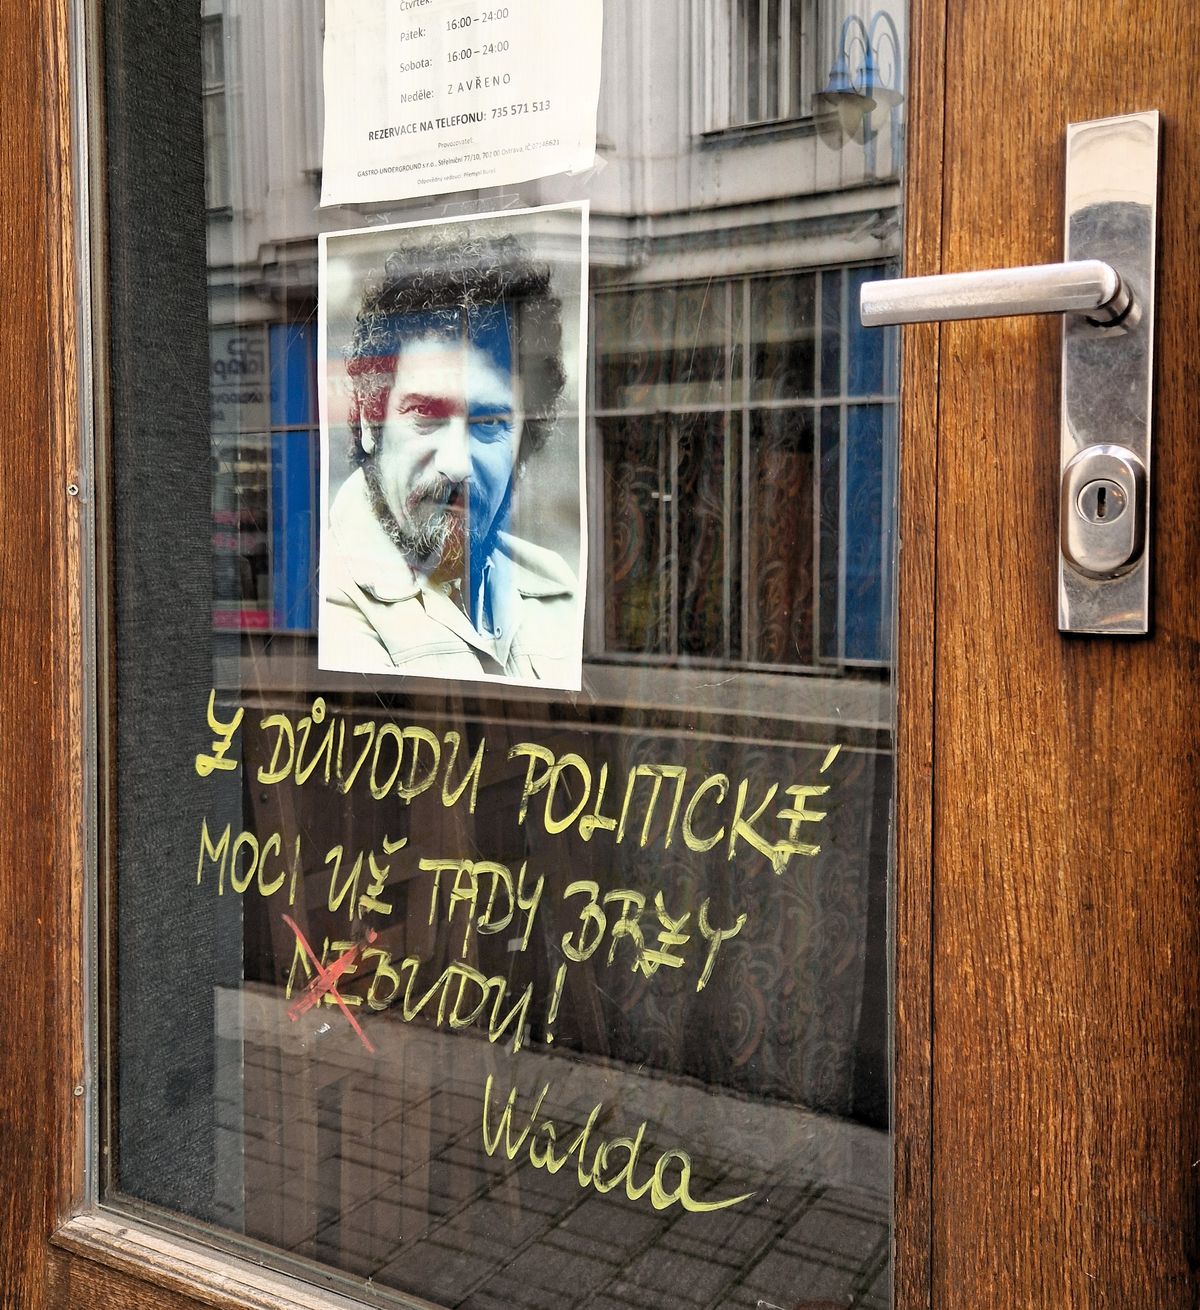 Čtvrtek:
Pátek: 16:00 – 24:00
Sobota: 16:00 – 24:00
Neděle: ZAVŘENO
REZERVACE NA TELEFONU: 735 571 513
Provozovatel:
GASTRO UNDERGROUND s r.o., Střelniční 77/10, 702 00 Ostrava, IČ 07146621
Odpovědný vedoucí: Přemysl Bureš
Z DŮVODU POLITICKÉ
MOCI UŽ TADY BRZY
NEBUDU!
Walda